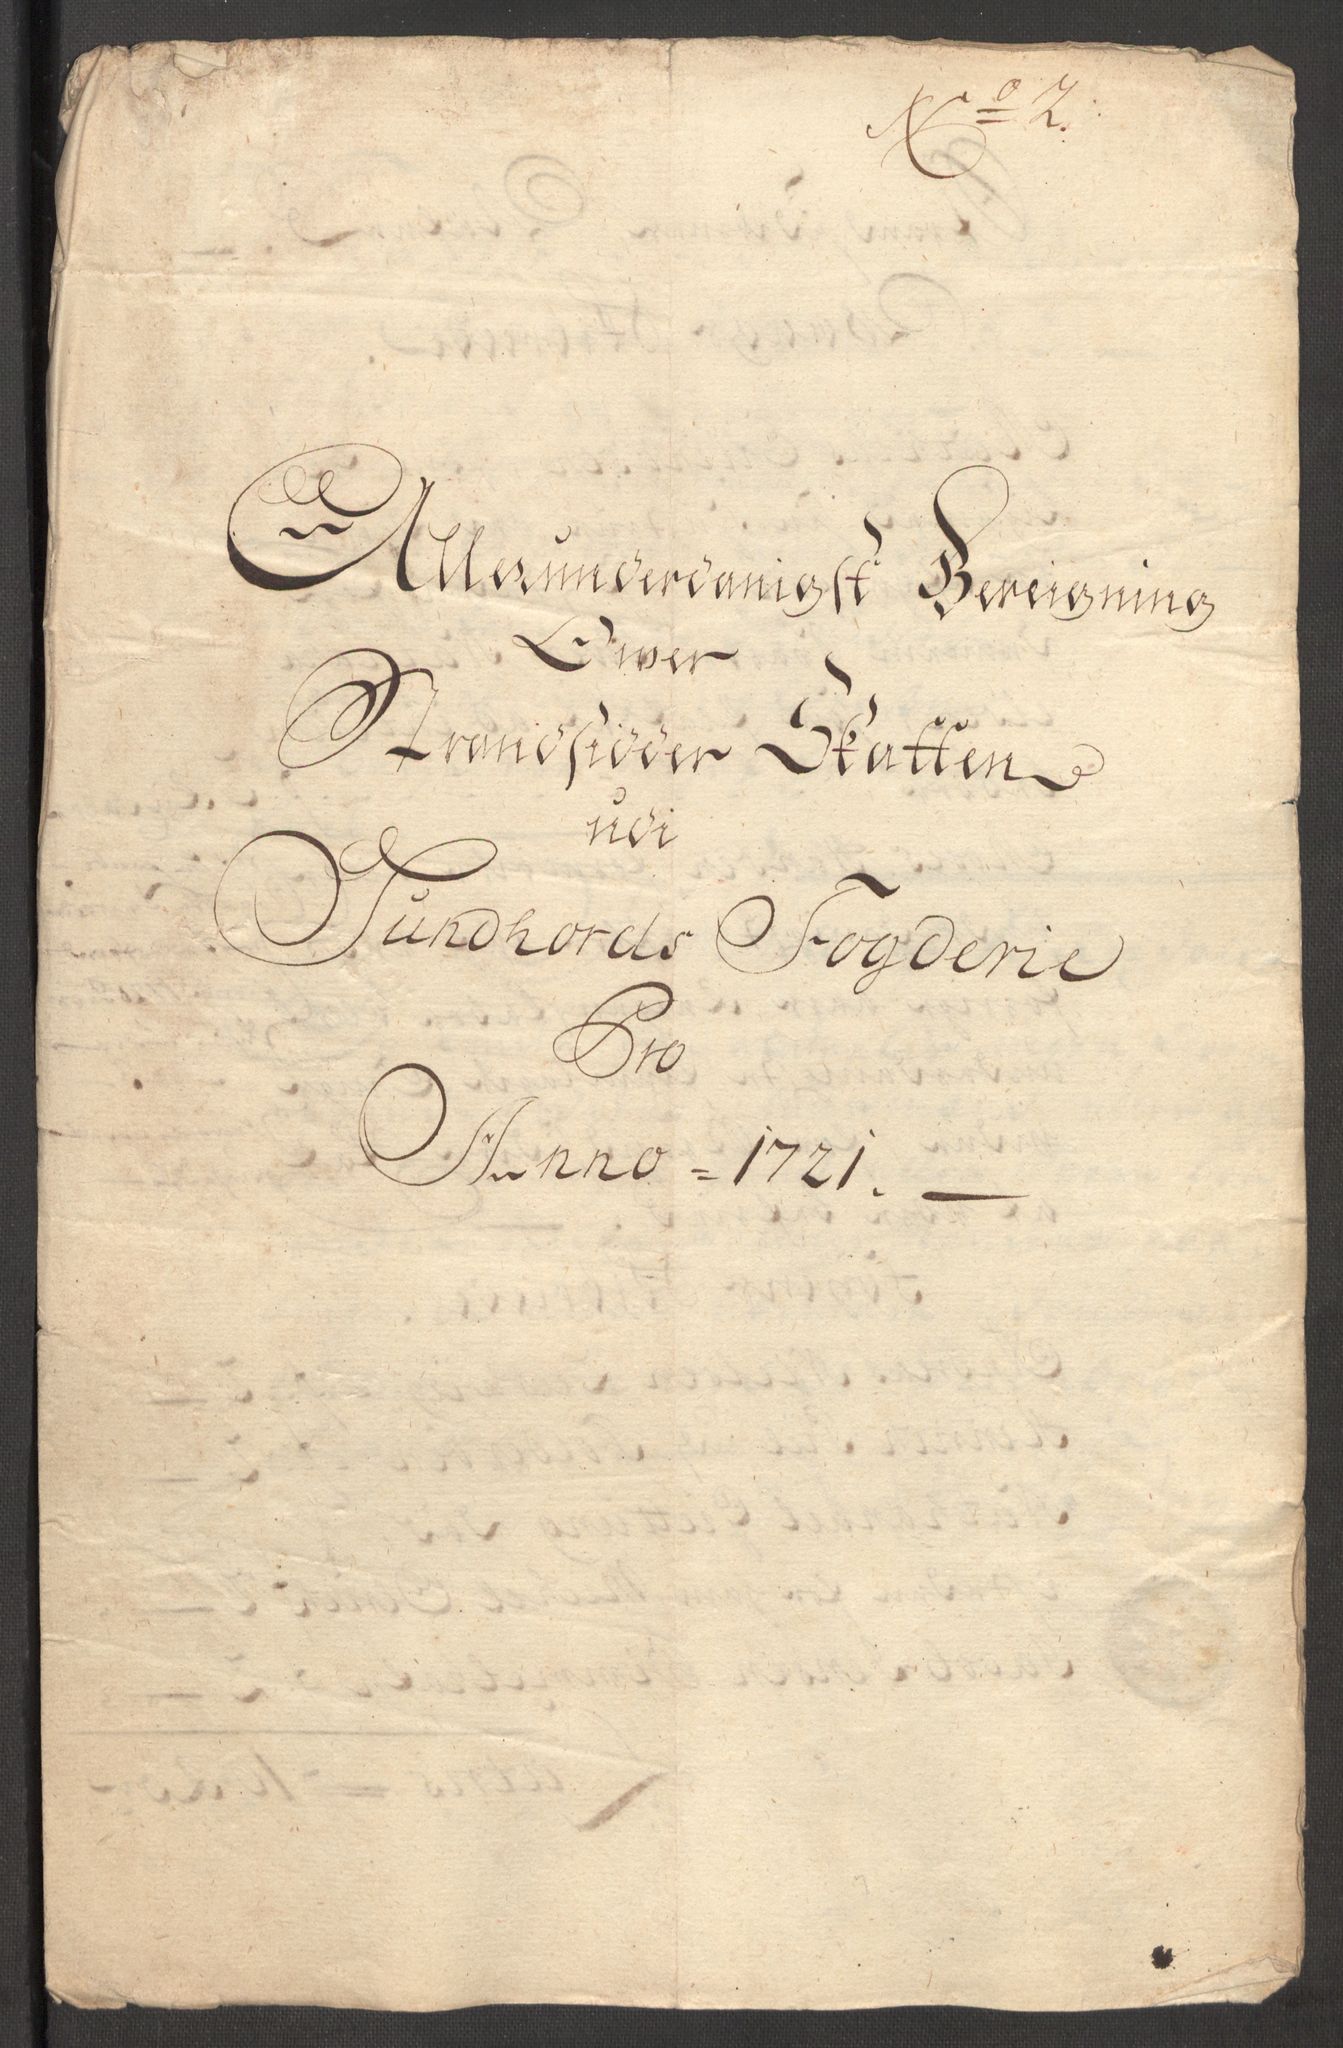 No 2.
Allerunderdanigst Bereigning
Ower
Strandsidder Skatten
udi
Sundhords Fogderie
Pro
Anno = 1721.